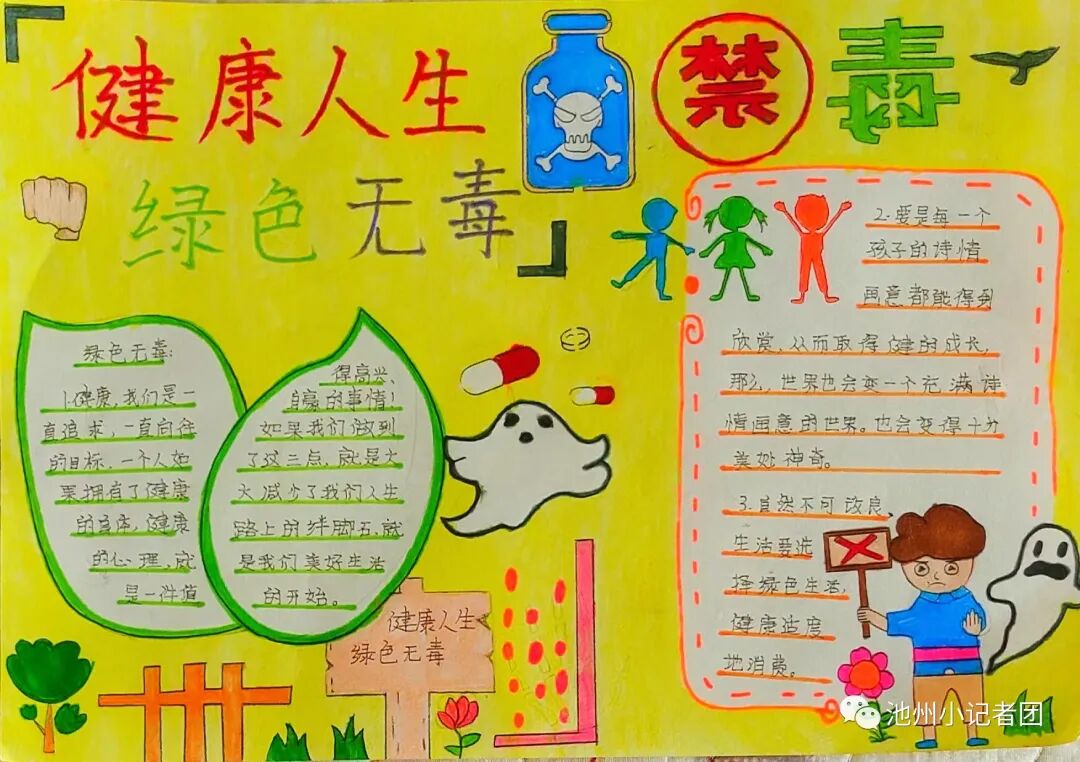 健康人生
禁毒
绿色无毒
绿色无毒:
1.健康,我们是一
直追求,一直向往
的目标,一个人如
果拥有了健康
的身体,健康
的心理,就
是一件值
得高兴、
自豪的事情!
如果我们做到
了这三点,就是大
大减少了我们人生
路上的绊脚石,就
是我们美好生活
的开始。
2.要是每一个
孩子的诗情
画意都能得到
欣赏,从而取得健的成长,
那么,世界也会变一个充满诗
情画意的世界。也会变得十分
美妙神奇。
3.自然不可改良、
生活要选
择绿色生活,
健康适度
地消费。
健康人生
绿色无毒
池州小记者团